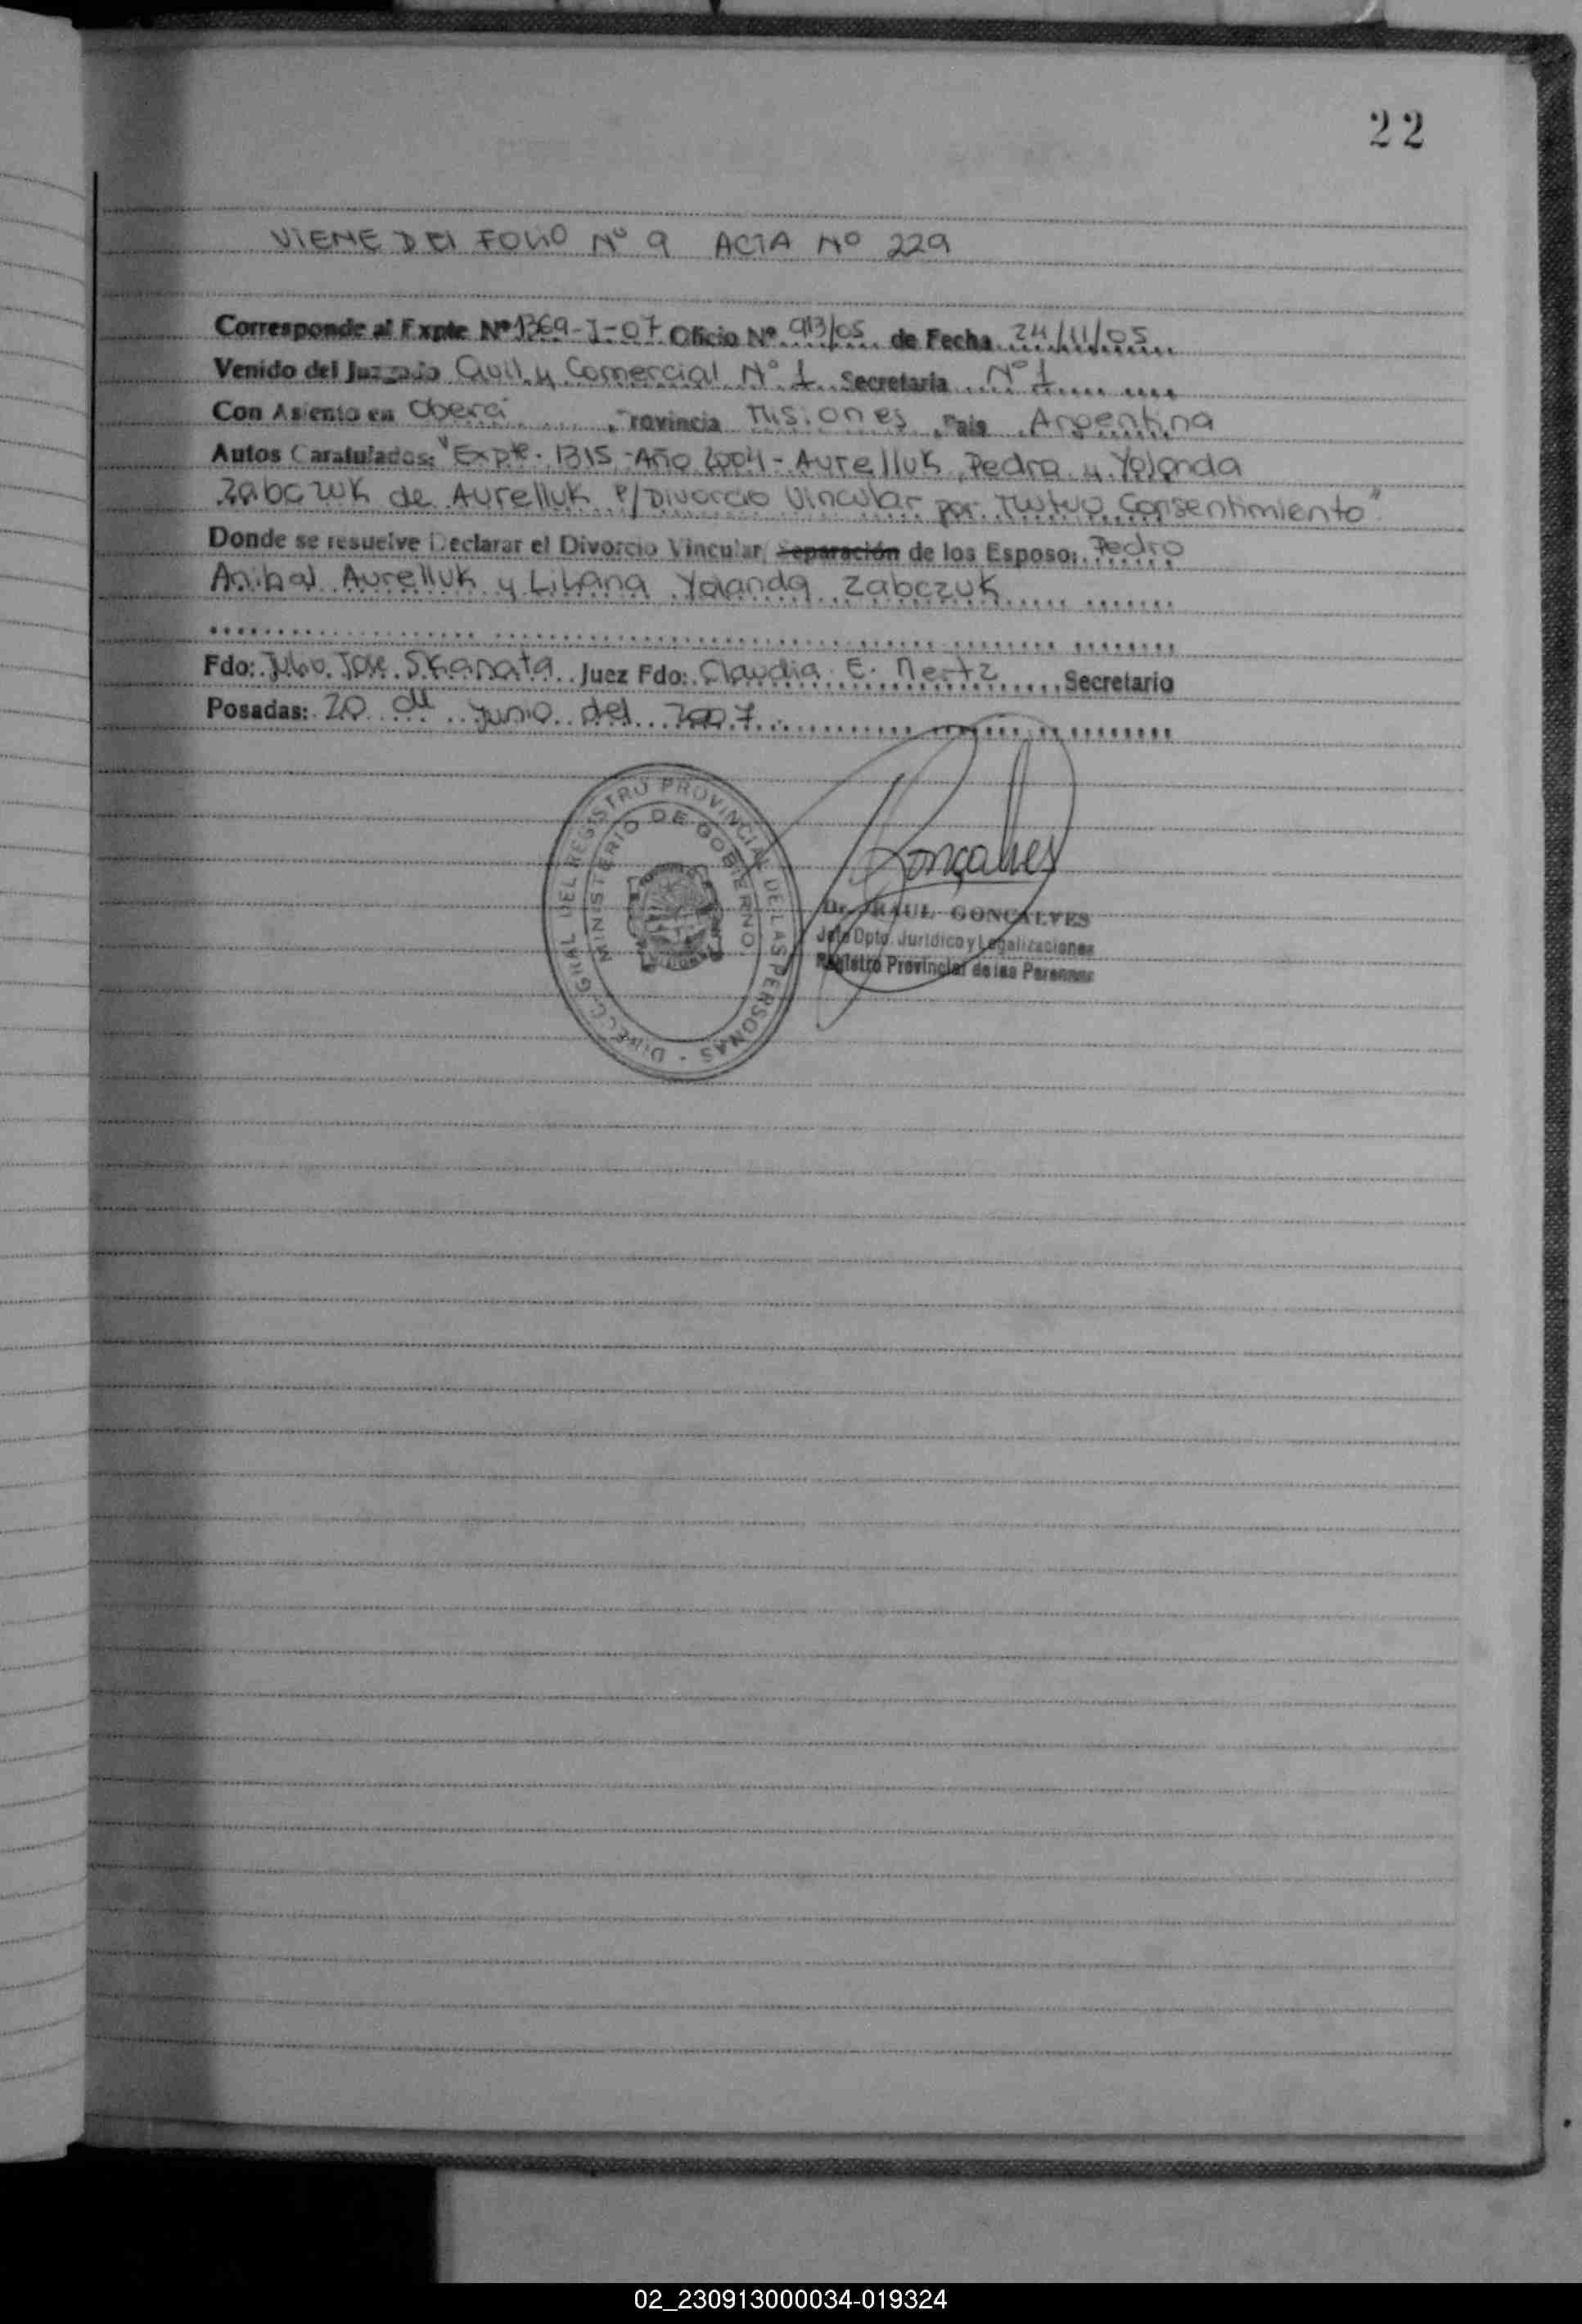 22
VIENE DEl FOLIO Nº 9 ACTA Nº 229
Corresponde al Expte Nº 1369-I-07 Oficio Nº 913/05 de Fecha 24/11/05
Venido del Juzgado Civil y Comercial Nº 1 Secretaria Nº 1
Con Asiento en Oberá Provincia Misiones Pais Argentina
Autos Caratulados: "Expte. 1315 - Año 2004 - Aurelluk, Pedro y Yolanda
Zabczuk de Aurelluk P/ Divorcio Vincular por Mutuo Consentimiento".
Donde se resuelve Declarar el Divorcio Vincular, Separación de los Esposo: Pedro
Anibal Aurelluk y Liliana Yolanda Zabczuk
Fdo: Julio Jose Skanata Juez Fdo: Claudia E. Mertz Secretario
Posadas: 20 de Junio del 2007
DIRECC. GRAL DEL REGISTRO PROVINCIAL DE LAS PERSONAS
MINISTERIO DE GOBIERNO
Gonçalves
Dr. RAUL GONCALVES
Jefe Dpto. Juridico y Legalizaciones
Registro Provincial de las Personas
02_230913000034-019324